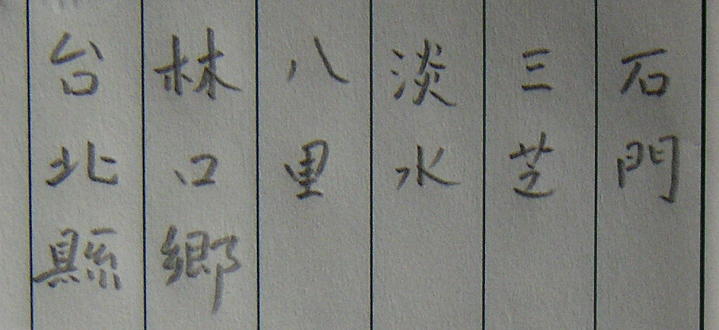 石門
三芝
淡水
八里
林口鄉
台北縣